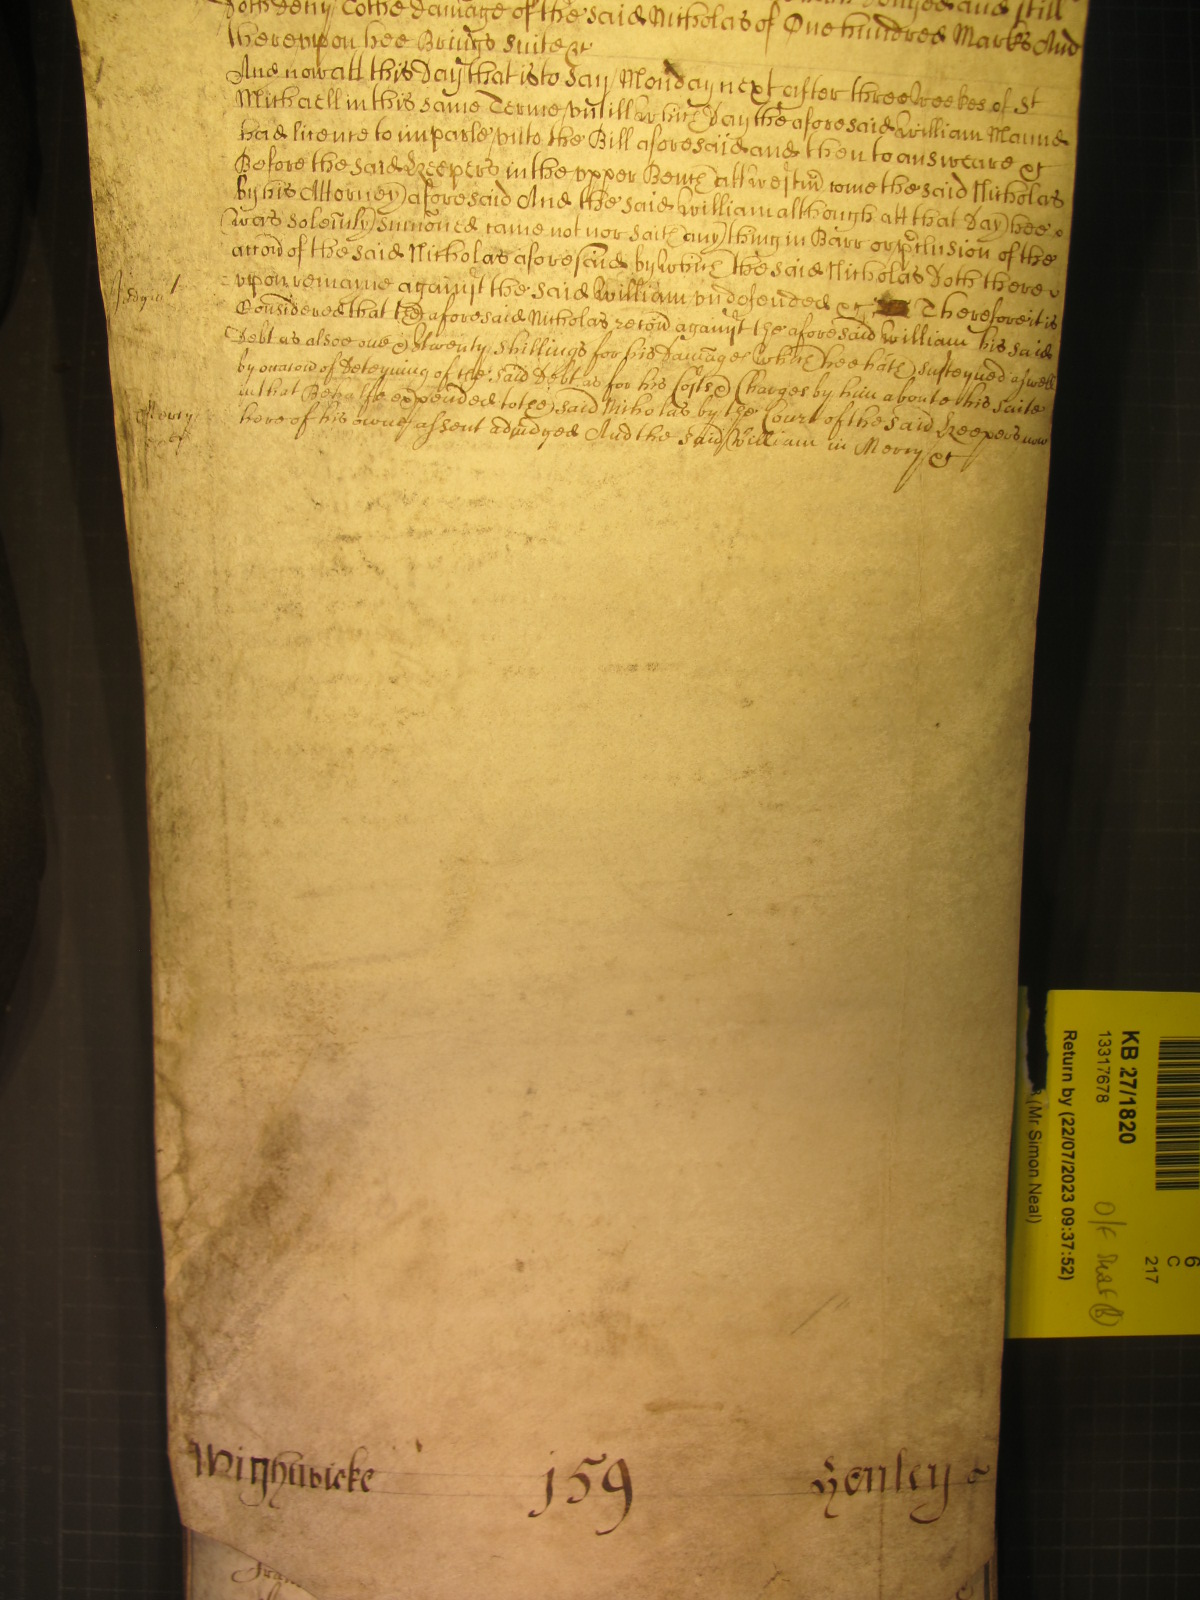 doth deny To the damage of the said Nicholas of One hundred Marks And
therevpon hee Brings suite &c
And now att this Day that is to say Monday next after three weekes of St
Michaell in this same Terme vntill which Day the aforesaid William Maund
had licence to imparle vnto the Bill aforesaid and then to answeare &c
Before the said Keepers in the vpper Bench att Westmr come the said Nicholas
by his Attorney aforesaid And the said William although att that day hee
was solemly sumoned came not nor saith any thing in Barr or preclusion of the
accon of the said Nicholas aforesaid by which the said Nicholas doth there
vpon remaine against the said William vndefended &c Therefore it is
Judgmt
Considered that the aforesaid Nicholas recou against the aforesaid William his said
Debt as alsoe one & twenty shillings for his Damages which hee hath susteyned aswell
by occacon of deteyning of the said Debt as for his Costs & Charges by him about his suite
in that Behalfe expended to the said Nicholas by the Court of the said Keepers now
here of his owne assent adiudged And the said William in Mercy &c
Mercy
Wightwicke 159 Henley
KB 27/1820
13317678
Return by (22/07/2023 09:37:52)
(Mr Simon Neal)
6
C
217